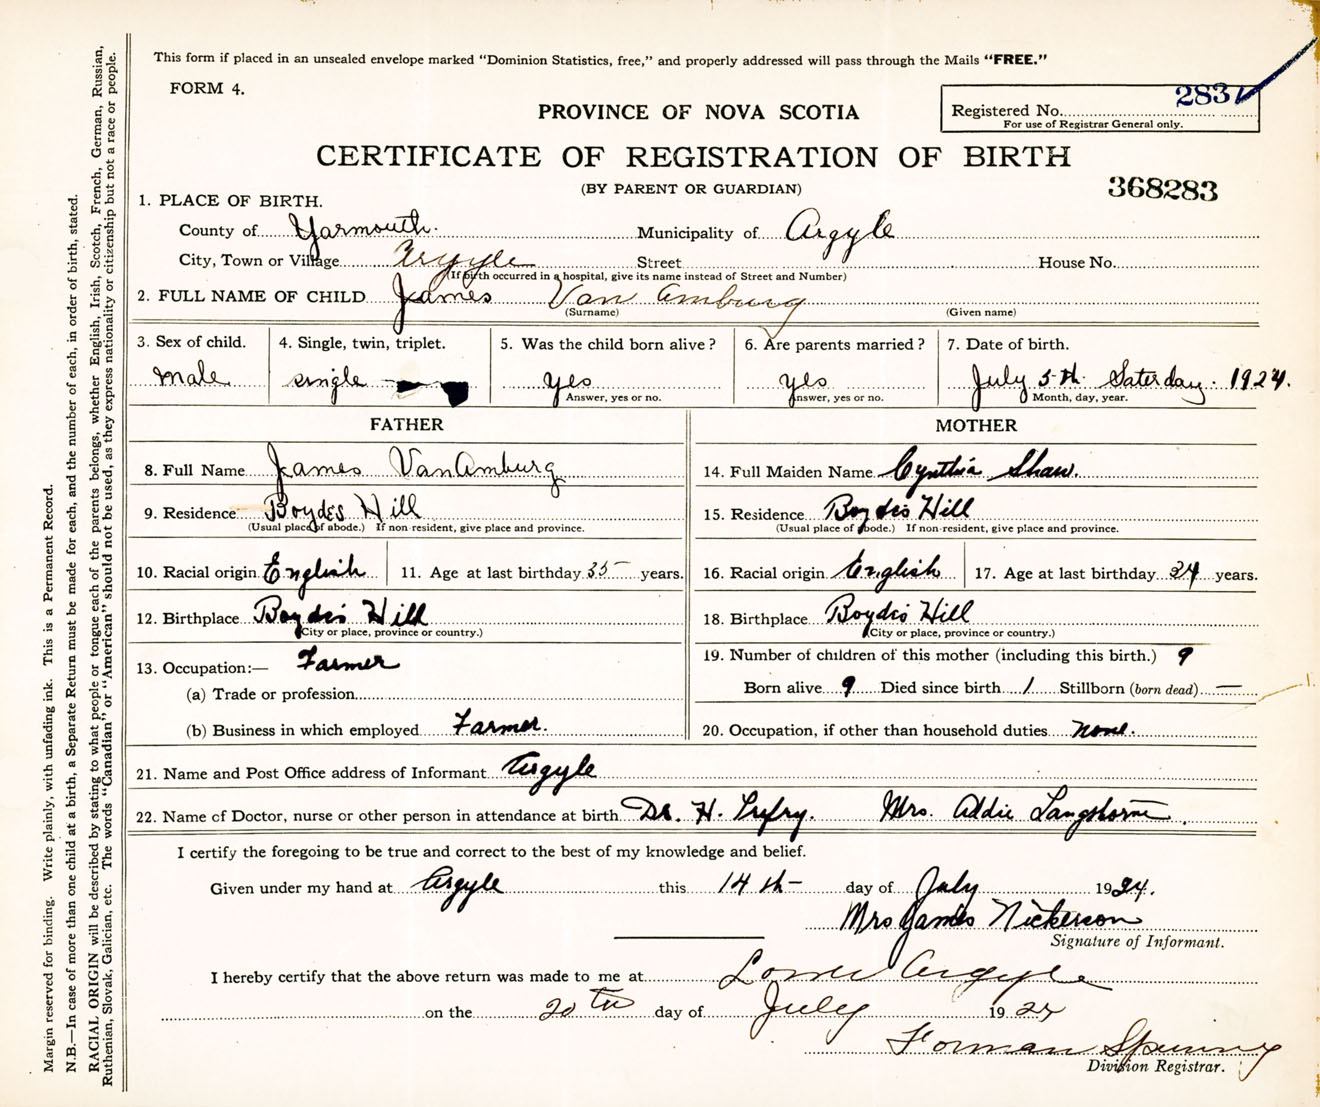 This form if placed in an unsealed envelope marked "Dominion Statistics, free," and properly addressed will pass through the Mails "FREE."
FORM 4.
PROVINCE OF NOVA SCOTIA
Registered No. 2831
For use of Registrar General only.
CERTIFICATE OF REGISTRATION OF BIRTH
(BY PARENT OR GUARDIAN)
368283
1. PLACE OF BIRTH.
County of Yarmouth. Municipality of Argyle
City, Town or Village Argyle Street House No.
(If birth occurred in a hospital, give its name instead of Street and Number)
2. FULL NAME OF CHILD James Van Amburg
(Surname) (Given name)
3. Sex of child. 4. Single, twin, triplet. 5. Was the child born alive? 6. Are parents married? 7. Date of birth.
male single yes yes July 5th Saterday. 1924.
Answer, yes or no. Answer, yes or no. Month, day, year.
FATHER MOTHER
8. Full Name James VanAmburg 14. Full Maiden Name Cynthia Shaw.
9. Residence Boyds Hill 15. Residence Boyds Hill
(Usual place of abode.) If non-resident, give place and province. (Usual place of abode.) If non-resident, give place and province.
10. Racial origin English 11. Age at last birthday 35 years. 16. Racial origin English 17. Age at last birthday 34 years.
12. Birthplace Boyds Hill 18. Birthplace Boyds Hill
(City or place, province or country.) (City or place, province or country.)
13. Occupation:— Farmer 19. Number of children of this mother (including this birth.) 9
(a) Trade or profession Born alive 9 Died since birth 1 Stillborn (born dead) —
(b) Business in which employed Farmer. 20. Occupation, if other than household duties none.
21. Name and Post Office address of Informant Argyle
22. Name of Doctor, nurse or other person in attendance at birth Dr. H. Trefry. Mrs. Addie Langthorne.
I certify the foregoing to be true and correct to the best of my knowledge and belief.
Given under my hand at Argyle this 14th day of July 1924.
Mrs James Nickerson
Signature of Informant.
I hereby certify that the above return was made to me at Lower Argyle
on the 20th day of July 1924
Forman Spinney
Division Registrar.
Margin reserved for binding. Write plainly, with unfading ink. This is a Permanent Record.
N.B.—In case of more than one child at a birth, a Separate Return must be made for each, and the number of each, in order of birth, stated.
RACIAL ORIGIN will be described by stating to what people or tongue each of the parents belongs, whether English, Irish, Scotch, French, German, Russian,
Ruthenian, Slovak, Galician, etc. The words "Canadian" or "American" should not be used, as they express nationality or citizenship but not a race or people.